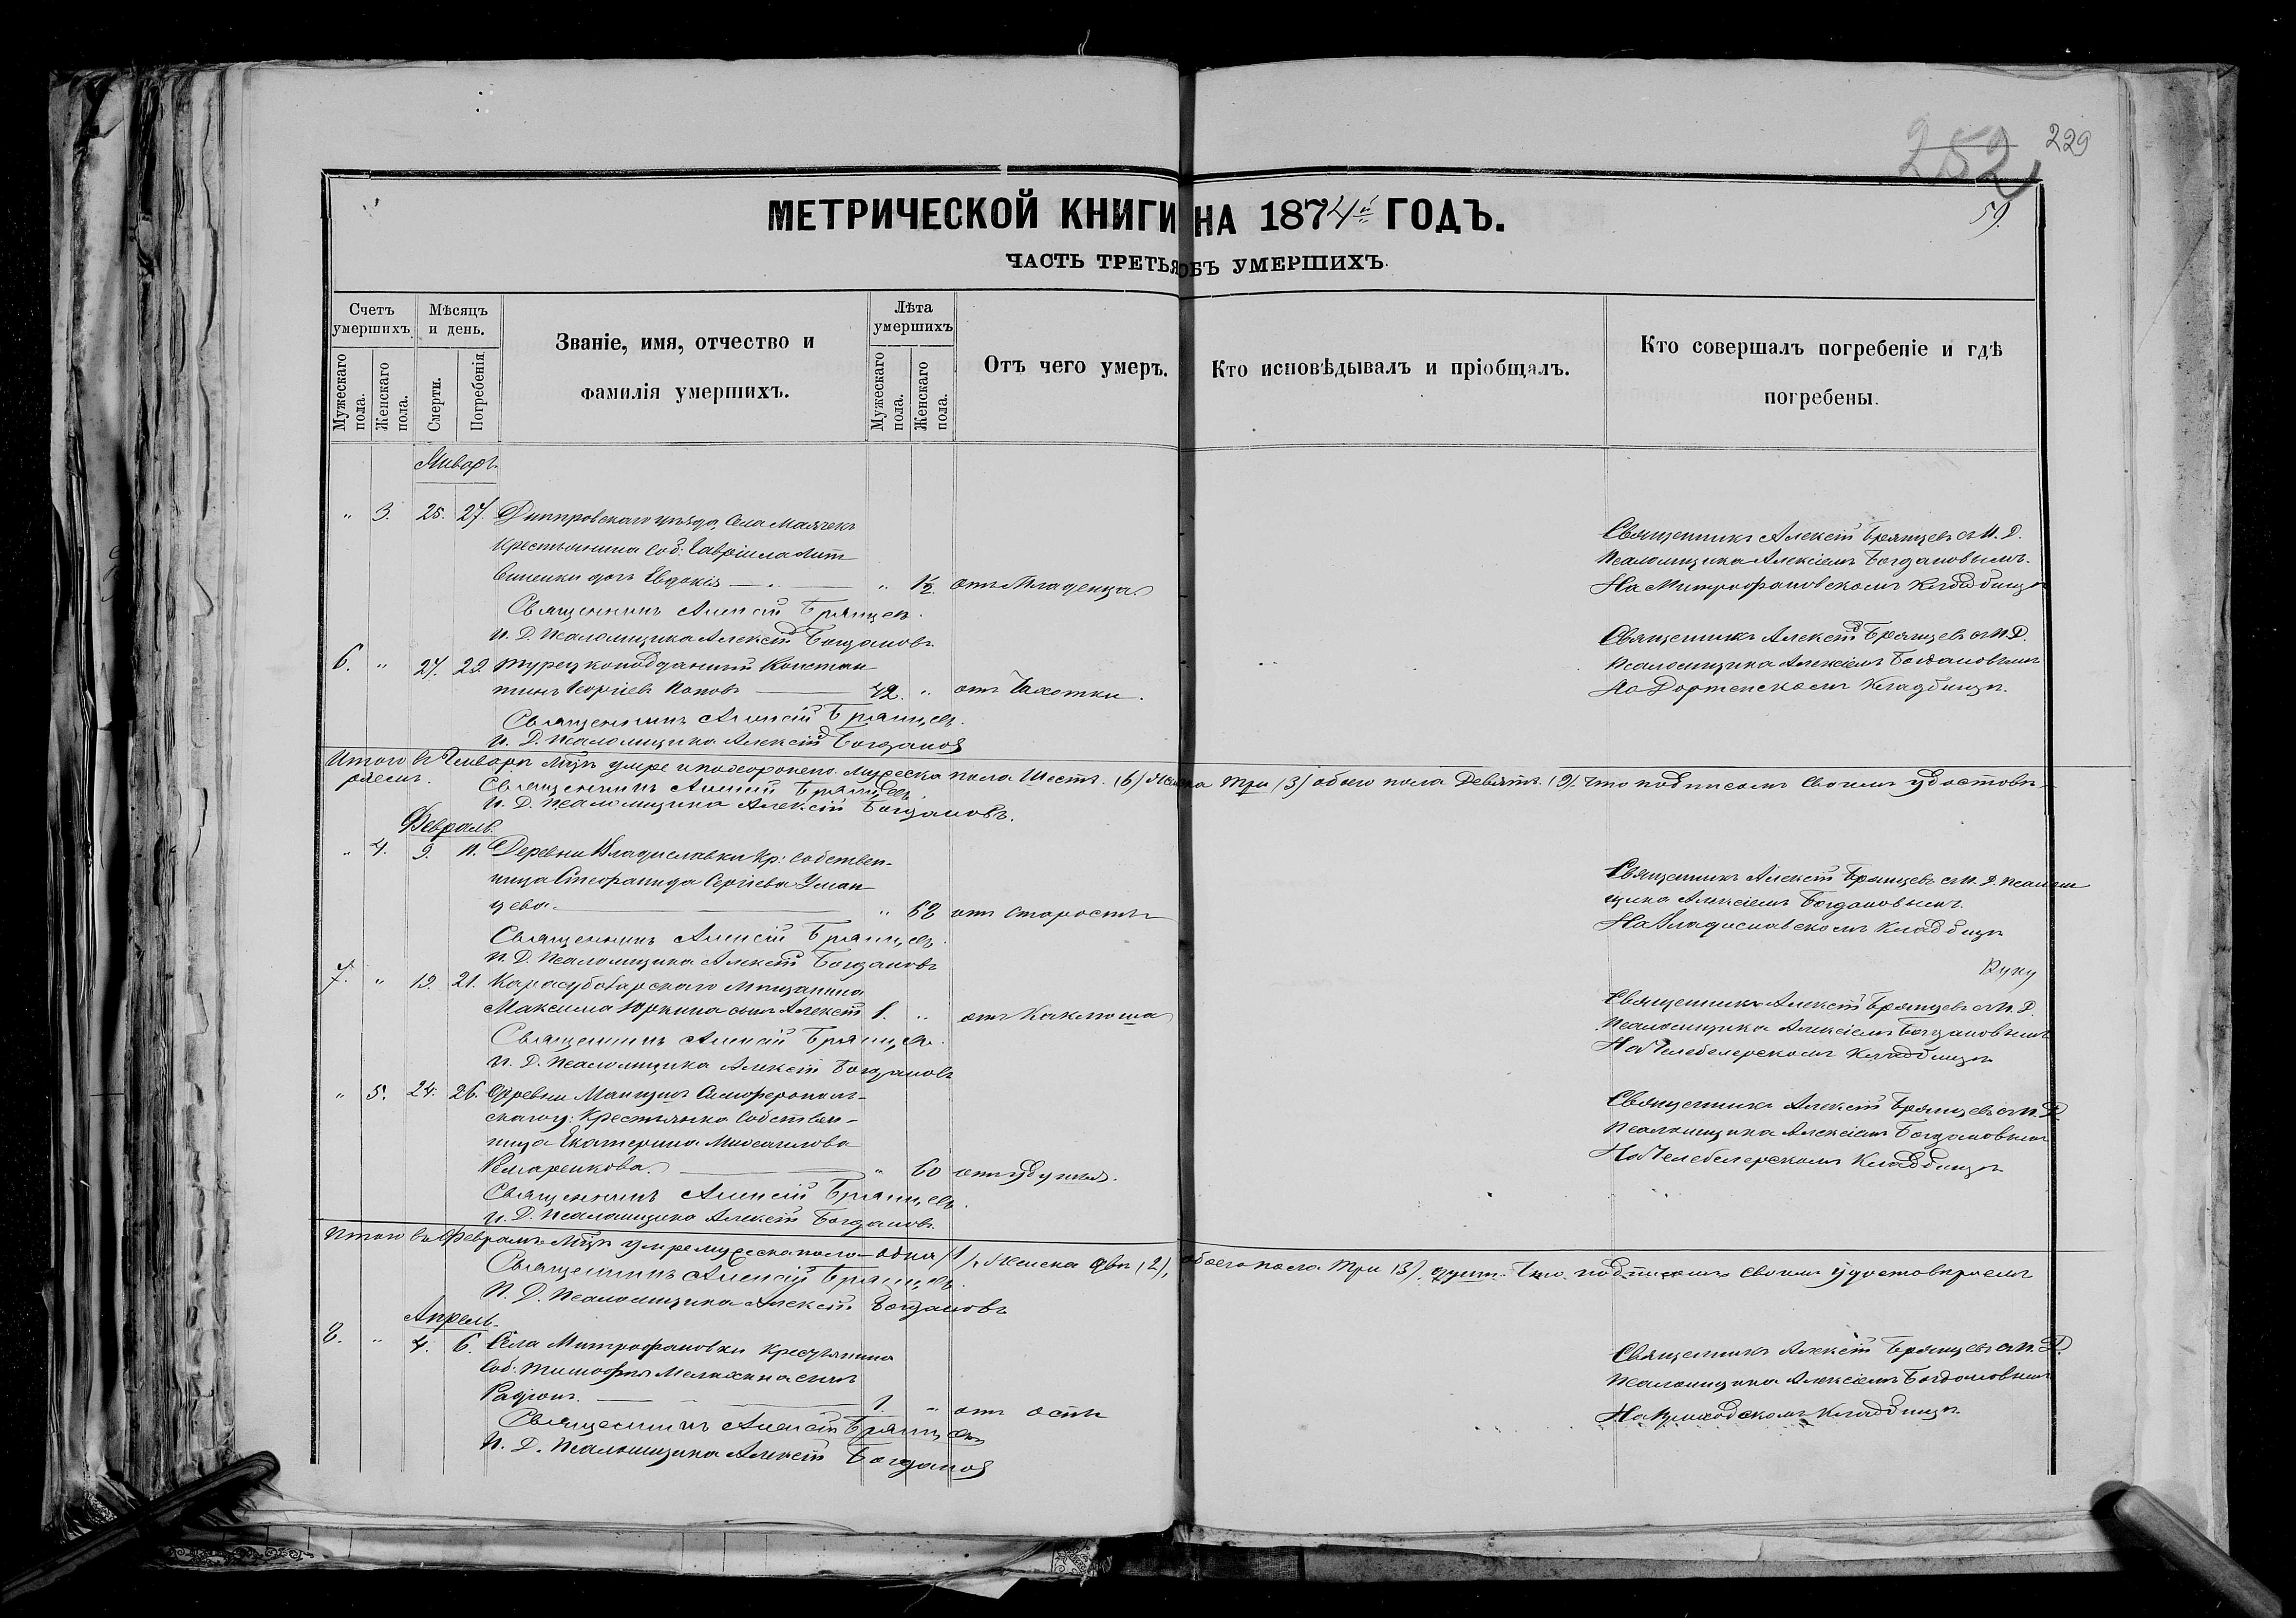 252 229
59.
МЕТРИЧЕСКОЙ КНИГИ НА 1874й ГОДЪ.
ЧАСТЬ ТРЕТЬЯ ОБЪ УМЕРШИХЪ.
Счетъ умершихъ
Мужескаго пола.
Женскаго пола.
Мѣсяцъ и день.
Смерти.
Погребенія
Званіе, имя, отчество и
фамилія умершихъ.
Лѣта умершихъ
Мужескаго пола.
Женскаго пола.
Отъ чего умеръ.
Кто исповѣдывалъ и пріобщалъ.
Кто совершалъ погребеніе и гдѣ
погребены.
Январь.
" 3. 25. 27. Днѣпровскаго уѣзда, Села Маячекъ
Крестьянина Соб: Гавріила Лит
виненки дочь Евдокія " 1/2. отъ Младенца
Священникъ Алексій Брянцевъ.
И. Д. Псаломщика Алексій Богдановъ.
Священникъ Алексій Брянцевъ съ И. Д.
Псаломщика Алексіемъ Богдановымъ.
На Митрофановскомъ Кладбищѣ
6. " 27. 29. Турецкоподданный Констан
тинъ Георгіевъ Поповъ 42. " отъ Чахотки.
Священникъ Алексій Брянцевъ.
И. Д. Псаломщика Алексій Богдановъ
Священникъ Алексій Брянцевъ съ И. Д.
Псаломщика Алексіемъ Богдановымъ
Кладбищѣ.
Итого въ Январѣ Мцѣ умре и похоронено мужеска пола Шесть (6) Женска Три (3) обоего пола Девять (9). Что подписомъ своимъ удостовѣ
ряемъ.
Священникъ Алексій Брянцевъ.
И. Д. Псаломщика Алексій Богдановъ.
Февраль.
" 4. 9. 11. Деревни Владиславки Кр: собствен-
ница Стефанида Сергіева Уман
цева " 62 отъ Старости
Священникъ Алексій Брянцевъ.
И. Д. Псаломщика Алексій Богдановъ
Священникъ Алексій Брянцевъ съ И. Д. Псалом
щика Алексіемъ Богдановымъ.
На Владиславскомъ Кладбищѣ
7. " 19. 21. Карасубазарскаго Мѣщанина
Максима Юркина сынъ Алексій 1. " отъ Каклюша
Священникъ Алексій Брянцевъ.
И. Д. Псаломщика Алексій Богдановъ
Священникъ Алексій Брянцевъ съ И. Д.
Псаломщика Алексіемъ Богдановымъ
На Челебелерскомъ Кладбищѣ
" 5. 24. 26. Деревни Мангушъ Симферополь-
скаго у: Крестьянка Собствен-
ница Екатерина Михаилова
Комаренкова. " 60 отъ удушья.
Священникъ Алексій Брянцевъ.
И. Д. Псаломщика Алексій Богдановъ.
Священникъ Алексій Брянцевъ съ И. Д.
Псаломщика Алексіемъ Богдановымъ
На Челебелерскомъ Кладбищѣ
Итого въ Февралѣ Мцѣ умре мужеска пола одна (1), Женска двѣ (2), обоего пола Три (3) души. Что подписомъ своимъ удостовѣряемъ
Священникъ Алексій Брянцевъ.
И. Д. Псаломщика Алексій Богдановъ
Апрель.
8. " 4. 6. Села Митрофановки Крестьянина
Соб: Тимофѣя Мелихина сынъ
Радіонъ. 1. " отъ оспы
Священникъ Алексій Брянцевъ
И. Д. Псаломщика Алексій Богдановъ
Священникъ Алексій Брянцевъ съ И. Д.
Псаломщика Алексіемъ Богдановымъ
На приходскомъ Кладбищѣ.